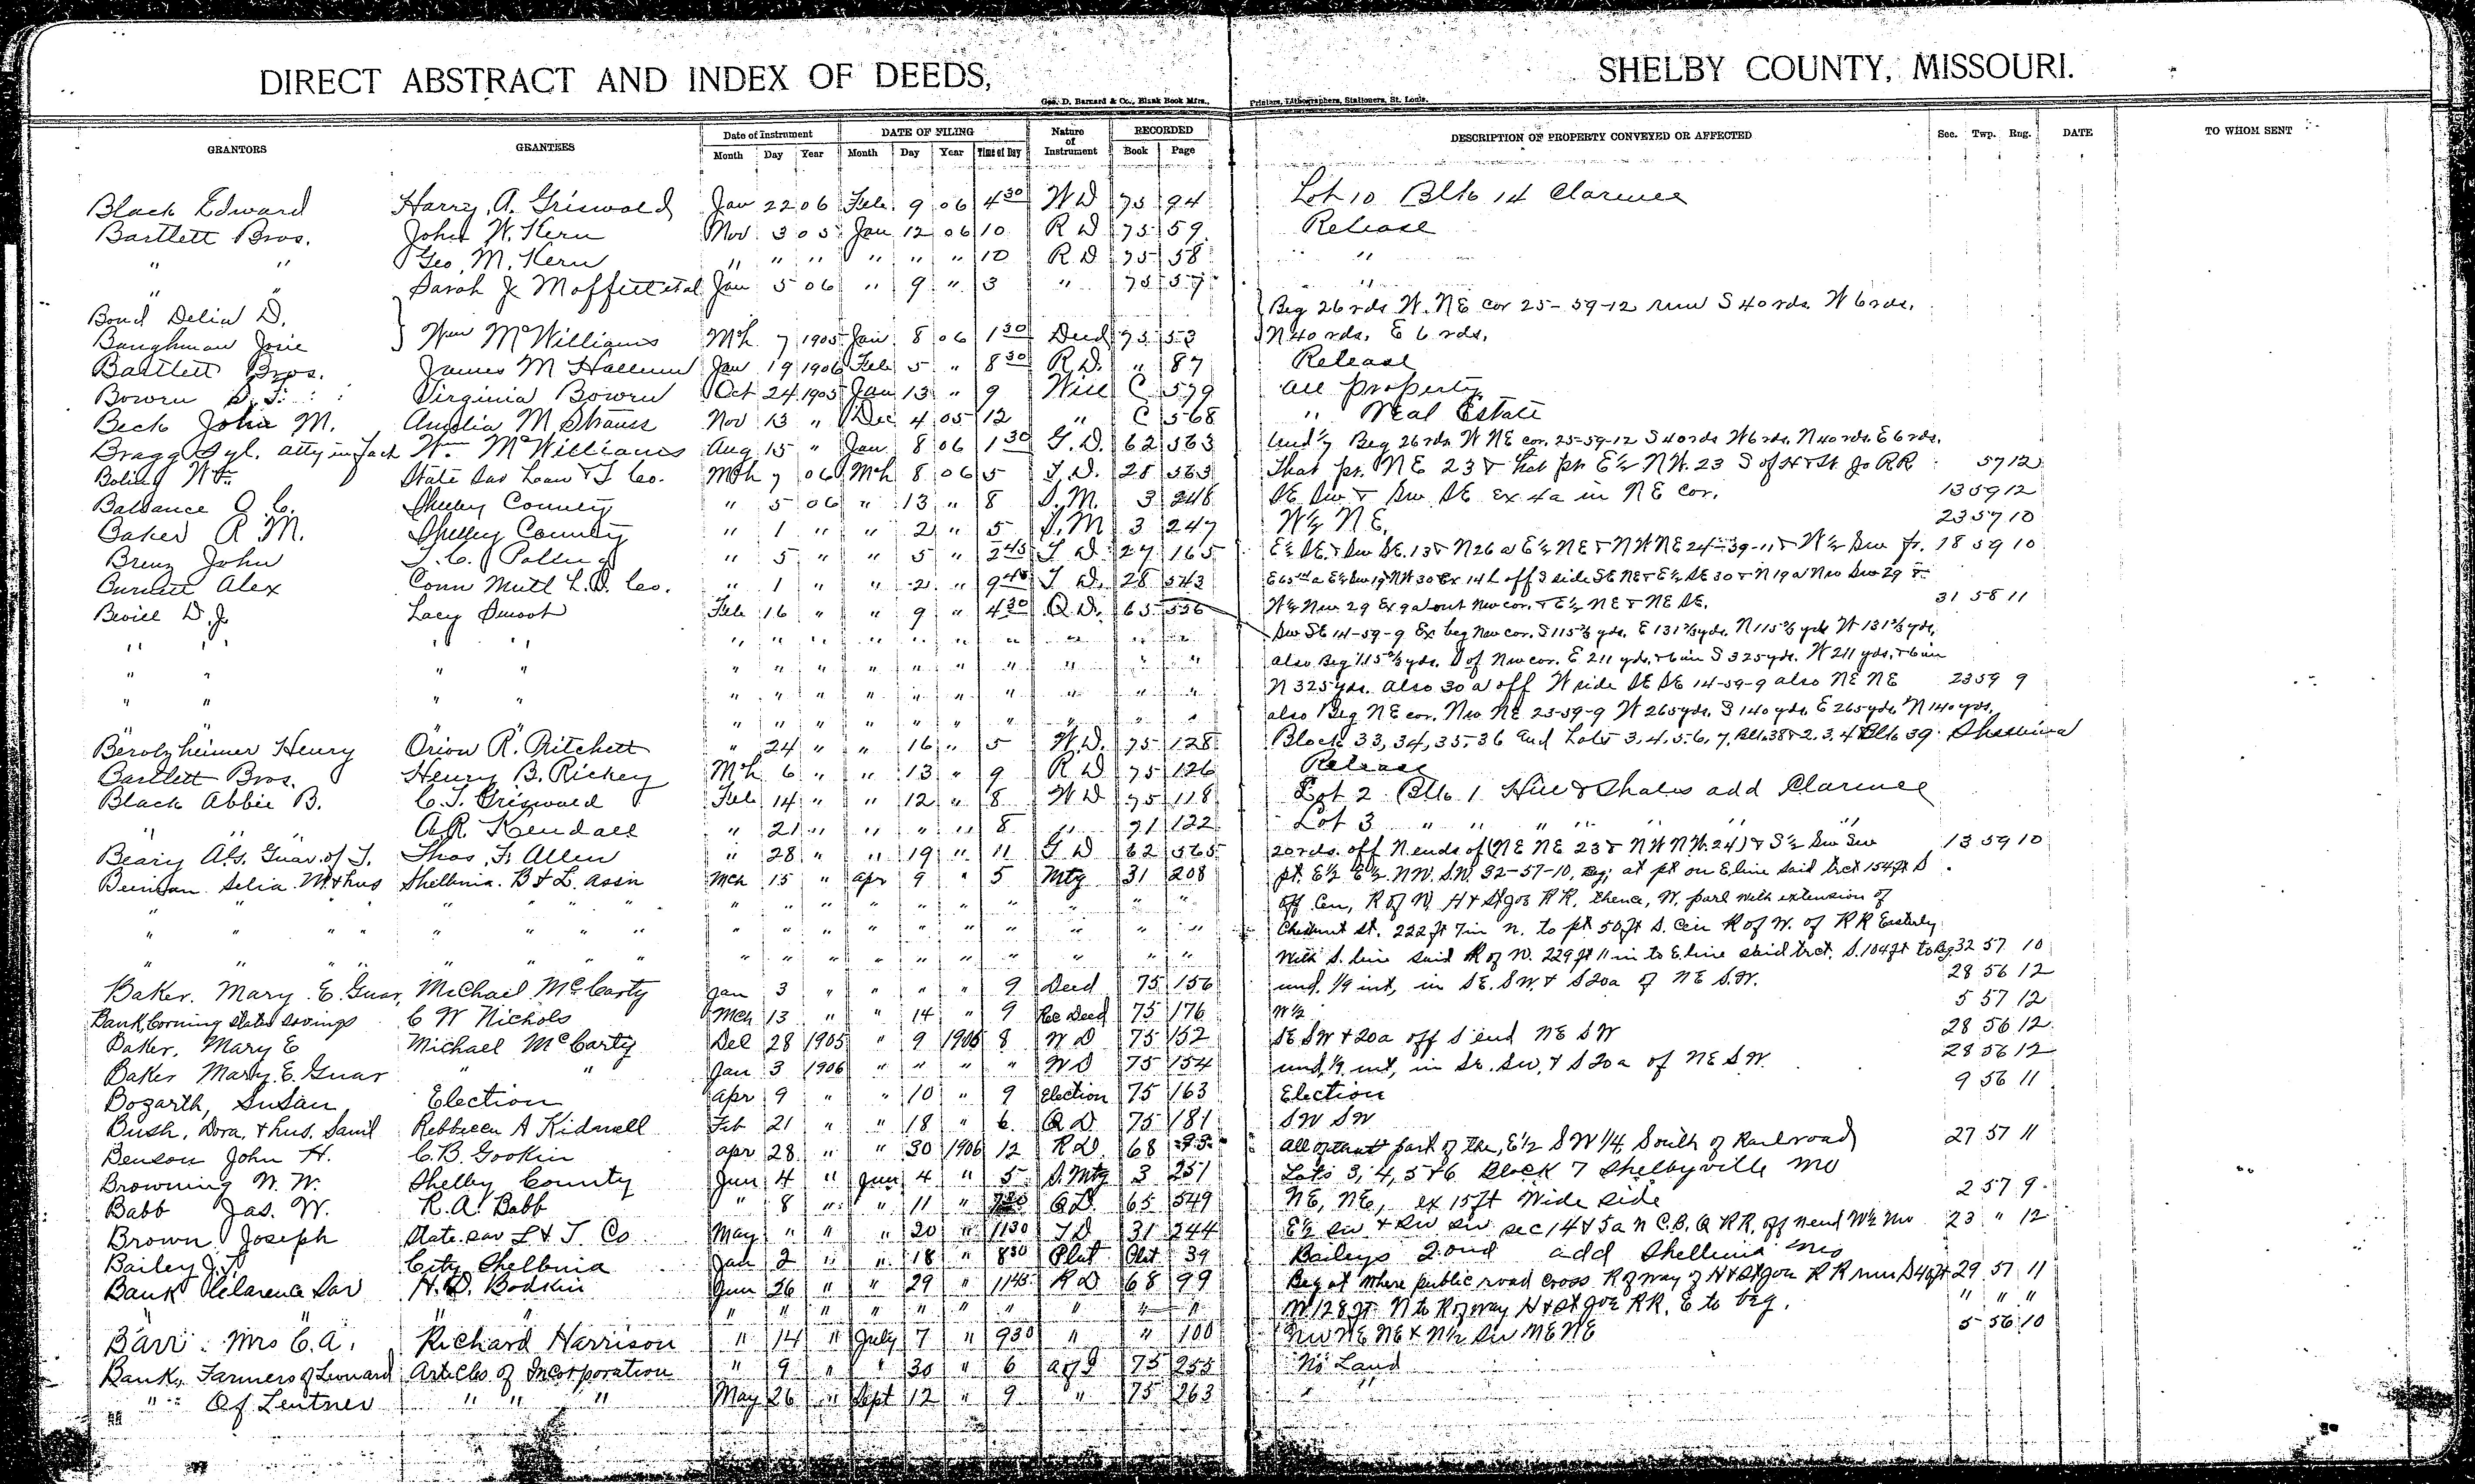 DIRECT ABSTRACT AND INDEX OF DEEDS, SHELBY COUNTY, MISSOURI.
Geo. D. Barnard & Co., Blank Book Mfrs., Printers, Lithographers, Stationers, St. Louis.
GRANTORS GRANTEES Date of Instrument DATE OF FILING Nature of Instrument RECORDED DESCRIPTION OF PROPERTY CONVEYED OR AFFECTED Sec. Twp. Rng. DATE TO WHOM SENT
Month Day Year Month Day Year Time of Day Book Page
Black Edward Harry A. Griswold Jan 22 06 Feb 9 06 4 30 W D 75 94 Lot 10 Blk 14 Clarence
Bartlett Bros. John W. Kern Nov 3 05 Jan 12 06 10 R D 75 59 Release
" " Geo. M. Kern " " " " " " 10 R D 75 58 "
" " Sarah J Moffitt etal Jan 5 06 " 9 " 3 " 75 57 "
Bond Delia D. Beg 26 rds W. NE cor 25-59-12 run S 40 rds. W 6 rds.
Baughman Josie Wm McWilliams Mch 7 1905 Jan 8 06 1 30 Deed 75 53 N 40 rds. E 6 rds.
Bartlett Bros. James M Hallum Jan 19 1906 Feb 5 " 8 30 R D. " 87 Release
Bowen S. F. Virginia Bowen Oct 24 1905 Jan 13 " 9 Will C 579 All property
Beck John M. Amelia M Strauss Nov 13 " Dec 4 05 12 " C 568 " Real Estate
Bragg Syl. atty in fact Wm McWilliams Aug 15 " Jan 8 06 1 30 G. D. 62 563 Und 1/7 Beg 26 rds. W NE cor. 25-59-12 S 40 rds W 6 rds. N 40 rds. E 6 rds.
Boling W. State Sav Loan & T Co. Mch 7 06 Mch 8 06 5 T. D. 28 563 That pt. NE 23 & that pt. E½ NW. 23 S of H & St. Jo RR 57 12
Ballance O. C. Shelby County " 5 06 " 13 " 8 S. M. 3 248 SE SW & SW SE ex 4a in NE cor. 13 59 12
Baker R M. Shelby County " 1 " " 2 " 5 S. M 3 247 W½ NE. 23 57 10
Brenz John " 5 " " 5 " 2 45 T D. 27 165 18 59 10
Burnett Alex Conn Mutl L. I. Co. " 1 " " 2 " 9 40 T D. 28 543
Bevill D. J. Lacy Smoot Feb 16 " " 9 " 4 30 Q D. 65 536 W½ NW 29 Ex 9a out NW cor. & E½ NE & NE SE. 31 58 11
" " " " " " " " " " " " " " SW SE 14-59-9 Ex beg NW cor. S 115⅔ yds. E 131⅔ yds. N 115⅔ yds W 131⅔ yds.
" " " " " " " " " " " " " " also Beg 115⅔ yds. S of NW cor. E 211 yds. & 6 in S 325 yds. W 211 yds. & 6 in
" " " " " " " " " " " " " " N 325 yds. also 30 a off W side SE SE 14-59-9 also NE NE 23 59 9
" " " " " " " " " " " " also Beg NE cor. NW NE 23-59-9 W 265 yds. S 140 yds. E 265 yds. N 140 yds.
Berolzheimer Henry Orion R. Pritchett " 24 " " 16 " 5 W. D. 75 128 Block 33, 34, 35, 36 and Lots 3, 4, 5, 6, 7, Blk 38 & 2, 3, 4 Blk 39 Shelbina
Bartlett Bros. Henry B. Rickey Mch 6 " " 13 " 9 R D 75 126 Release
Black Abbie B. C. T. Griswold Feb 14 " " 12 " 8 W D 75 118 Lot 2 Blk 1 Hill & Shales add Clarence
" " A. R. Kendall " 21 " " " " 8 " 71 122 Lot 3 " " " " " "
Beary A. S. Guar. of T. Thos. F. Allen " 28 " " 19 " 11 G D 62 565 20 rds. off N ends of (NE NE 23 & NW NW. 24) & S½ SW SW 13 59 10
Delia M & hus Shelbina B & L Assn Mch 15 " Apr 9 " 5 Mtg 31 208 pt. E½ E½ NW. SW. 32-57-10, Beg. at pt on E line said trct 154 ft S
" " " " " " " " " " " " " " off Cen, R of W H & St Joe RR, thence, W. parl with extension of
" " " " " " " " " " " " " " Chestnut St. 222 ft 7 in N. to pt 50 ft S. Cen R of W. of RR Easterly
" " " " " " " " " " " " " " With S. line said R of W. 229 ft 11 in to E. line said trct. S. 104 ft to Beg. 32 57 10
Baker. Mary E. Guar, Michael McCarty Jan 3 " " " " 9 Deed 75 156 und. 1/9 int, in SE. SW. & S 20a of NE SW. 28 56 12
Bank Corning State Savings C W Nichols Mch 13 " 14 " 9 Rec Deed 75 176 W½ 5 57 12
Baker, Mary E Michael McCarty Dec 28 1905 " 9 1906 8 W D 75 152 SE SW & 20a off S end NE SW 28 56 12
Baker Mary E. Guar " " Jan 3 1906 " " " " W D 75 154 und. 1/9 int, in SE. SW. & S 20a of NE SW. 28 56 12
Bozarth, Susan Election Apr 9 " " 10 " 9 Election 75 163 Election 9 56 11
Bush, Dora, & hus. Saml Rebbecca A Kidwell Feb 21 " " 18 " 6 Q D 75 181 SW SW
Benson John H. C. B. Gookin Apr 28 " " 30 1906 12 R D 68 All of that part of the, E½ SW¼, South of Railroad 27 57 11
Browning W. W. Shelby County Jun 4 " Jun 4 " 5 S. Mtg 3 251 Lots 3, 4, 5 & 6 Block 7 Shelbyville Mo
Babb Jas. W. R. A. Babb " 8 " " 11 " Q D. 65 549 NE, NE, ex 15 ft Wide side 2 57 9
Brown Joseph State Sav L & T. Co May " " " 20 " 11 30 T D 31 244 E½ SW & SW SW sec 14 & 5a N C. B. Q RR. off N end W½ NW 23 " 12
Bailey J. T. City Shelbina Jan 2 " " 18 " 8 30 Plat Plat 39 Baileys 2ond add Shelbina Mo
Bank Clarence Sav H. D. Bodkin Jun 26 " " 29 " 11 45 R D 68 99 Beg at where public road cross R of way of H & St Joe R R run S 40 ft 29 57 11
" " " " " " " " " " " " W 128 ft N to R of way H & St Joe RR. E to beg. " " "
Barr. Mrs C. A. Richard Harrison " 14 " July 7 " 9 30 " " 100 NW NE NE & N½ SW NE NE 5 56 10
Bank, Farmers of Leonard Articles of Incorporation " 9 " " 30 " 6 A of I 75 255 No Land
" Of Lentner " " " May 26 " Sept 12 " 9 " 75 263 " "